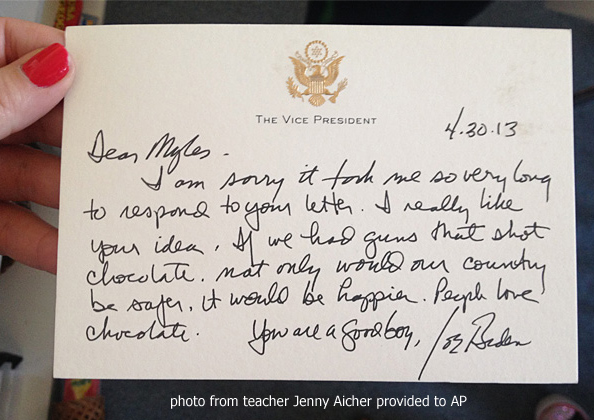 THE VICE PRESIDENT
4.30.13
Dear Myles -
I am sorry it took me so very long
to respond to your letter. I really like
your idea. If we had guns that shot
chocolate, not only would our country
be safer, it would be happier. People love
chocolate. You are a good boy, Joe Biden
photo from teacher Jenny Aicher provided to AP